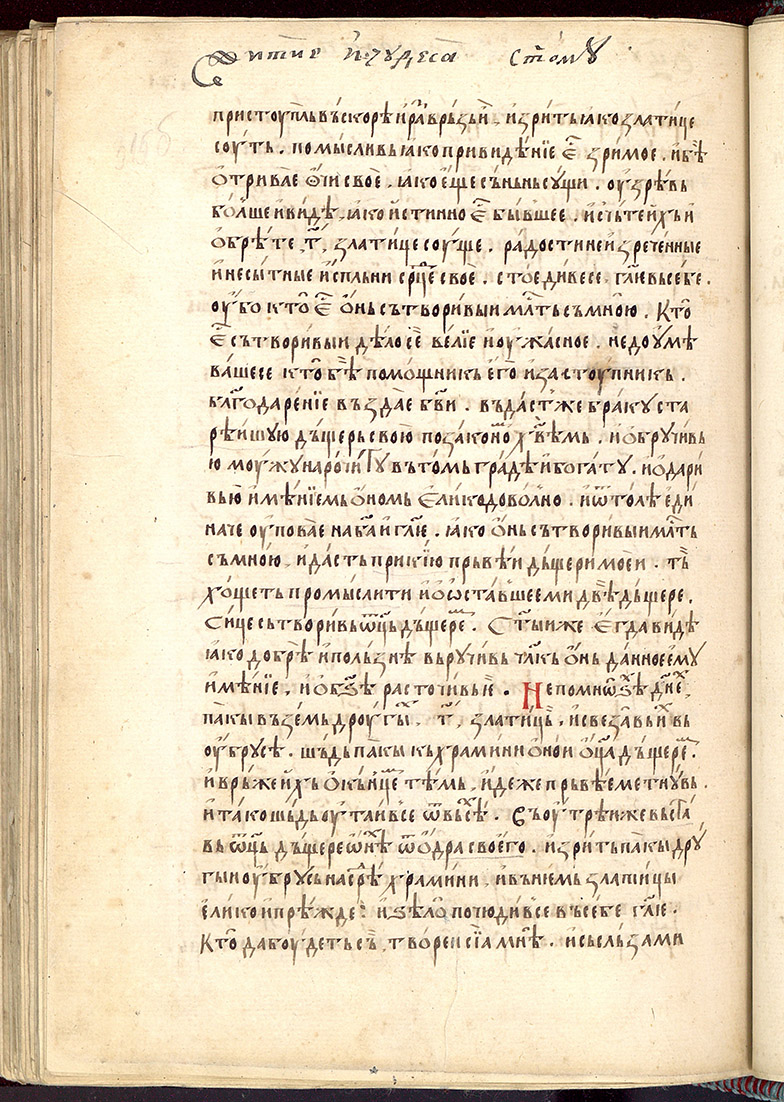 Житие и чудеса ст҃омꙋ
пристоупль въскорѣ и раꙁврьꙁы и҆, и҆ꙁрить ꙗко златице
соуть. помысливь ꙗко привидѣнїе є҆ зримое. и҆ бѣ
ѻтривае ѻчи своѐ. ꙗко є҆ще сьньны соущи. ѹзрѣвь
болше и҆ видѣ, ꙗко и҆стинно є҆ бывшее. и҆счьте и҆хь и҆
ѻбрѣте, т҃, златице соуще. радости неиꙁреченные
и҆ несытные и҆сплъни срⷣце своѐ. стое дивесе, гл҃ѥ вь себе.
ѹбо кто̀ є҆ ѻнь сътворивыи млⷭть съ мною. Кто̀
є҆ сътворивыи дѣло сѐ велїе и҆ оужасное. недоумѣ
вашесе кто̀ бѣ помощникь є҆го̀ и҆ застоупникь.
бл҃годаренїе въздае бг҃ви. въдасть же браку ста
рѣишую дъщерь свою по законоу хв҃ѣмь. и҆ ѻбручивь
ю моужу нарочиту въ томь градѣ и҆ богату. и҆ ѻдари
вь ю и҆мѣнїемь ѻномь є҆лико доволно. и҆ ѿтолѣ є҆ди
наче оуповае на ба҃ и҆ гл҃ѥ. ꙗко ѻнь сътворивыи млⷭть
съ мною, и҆ дасть прикїю прьвѣи дъщери моеи. тъ̀
хощеть промыслити и҆ ѻ ѡставшее ми двѣ дъщере.
Сице сьтворивь ѿць дъщере. Ст҃ыи же є҆гда видѣ
ꙗко добрѣ и҆ полъзнѣ вьручивь чл҃кь ѻнь данное є҆му
и҆мѣнїе, и҆ ѻбаче расточивь є҆. Не по мноѕѣ дн҃ехь
пакы възѐмь другыи, т҃, златиць. и҆ свезавь и҆хь вь
ѹбрусѣ. шьдь пакы къ храмини ѻнои ѻц҃а дъщерем.
и҆ врьже и҆хь ѻкънцемь тѣмь, и҆деже прьвѣе метнувь.
и҆ тако шьдь оутаи все ѿ всѣхь. Съ оутрѣи же вьста
вь ѿць дъщере ѻнѣхь ѿ ѻдра своего. и҆ зрить пакы дру
гыи ѹбрусь на срⷣѣ храмини. и҆ вь нѥмь златицы
є҆лико и҆ прѣжде. и҆ ѕѣло̀ почюдивсе въ себе гл҃ѥ.
Кто̀ да боудеть съ творѐи сїа мнѣ. и҆ сь слъзами